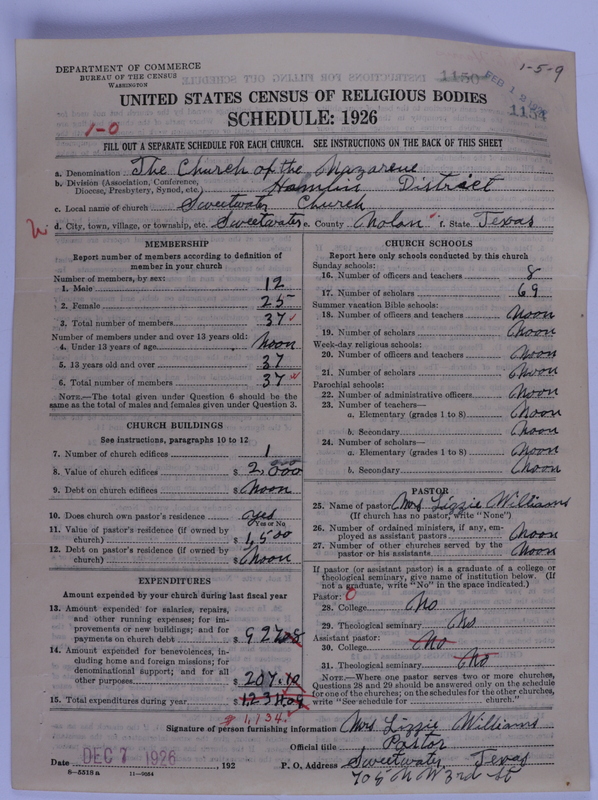 DEPARTMENT OF COMMERCE
BUREAU OF THE CENSUS
WASHINGTON
1-5-9
1150
FEB 1 2
1154
UNITED STATES CENSUS OF RELIGIOUS BODIES
SCHEDULE: 1926
1-0
FILL OUT A SEPARATE SCHEDULE FOR EACH CHURCH. SEE INSTRUCTIONS ON THE BACK OF THIS SHEET
a. Denomination The Church of the Nazarene
b. Division (Association, Conference, Diocese, Presbytery, Synod, etc.) Hamlin District
c. Local name of church Sweetwater Church
d. City, town, village, or township, etc. Sweetwater e. County Nolan f. State Texas
MEMBERSHIP
Report number of members according to definition of
member in your church
Number of members, by sex:
1. Male 12
2. Female 25
3. Total number of members 37
Number of members under and over 13 years old:
4. Under 13 years of age Noon
5. 13 years old and over 37
6. Total number of members 37
NOTE.—The total given under Question 6 should be the
same as the total of males and females given under Question 3.
CHURCH BUILDINGS
See instructions, paragraphs 10 to 12
7. Number of church edifices 1
8. Value of church edifices $ 2,000
9. Debt on church edifices $ Noon
10. Does church own pastor's residence yes
Yes or No
11. Value of pastor's residence (if owned by
church) $ 1,500
12. Debt on pastor's residence (if owned by
church) $ Noon
EXPENDITURES
Amount expended by your church during last fiscal year
13. Amount expended for salaries, repairs,
and other running expenses; for im-
provements or new buildings; and for
payments on church debt $
14. Amount expended for benevolences, in-
cluding home and foreign missions; for
denominational support; and for all
other purposes $ 207.10
15. Total expenditures during year
$ 1,134.
CHURCH SCHOOLS
Report here only schools conducted by this church
Sunday schools:
16. Number of officers and teachers 8
17. Number of scholars 69
Summer vacation Bible schools:
18. Number of officers and teachers Noon
19. Number of scholars Noon
Week-day religious schools:
20. Number of officers and teachers Noon
21. Number of scholars Noon
Parochial schools:
22. Number of administrative officers Noon
23. Number of teachers—
a. Elementary (grades 1 to 8) Noon
b. Secondary Noon
24. Number of scholars—
a. Elementary (grades 1 to 8) Noon
b. Secondary Noon
PASTOR
25. Name of pastor Mrs Lizzie Williams
(If church has no pastor, write "None")
26. Number of ordained ministers, if any, em-
ployed as assistant pastors Noon
27. Number of other churches served by the
pastor or his assistants Noon
If pastor (or assistant pastor) is a graduate of a college or
theological seminary, give name of institution below. (If
not a graduate, write "No" in the space indicated.)
Pastor: 0
28. College No
29. Theological seminary No
Assistant pastor:
30. College No
31. Theological seminary No
NOTE.—Where one pastor serves two or more churches,
Questions 28 and 29 should be answered only on the schedule
for one of the churches; on the schedules for the other churches,
write "See schedule for church."
Signature of person furnishing information Mrs Lizzie Williams
Official title Pastor
Date DEC 7 1926 , 192 P. O. Address Sweetwater Texas
8—5518 a 11—9054
705 N W 3rd St